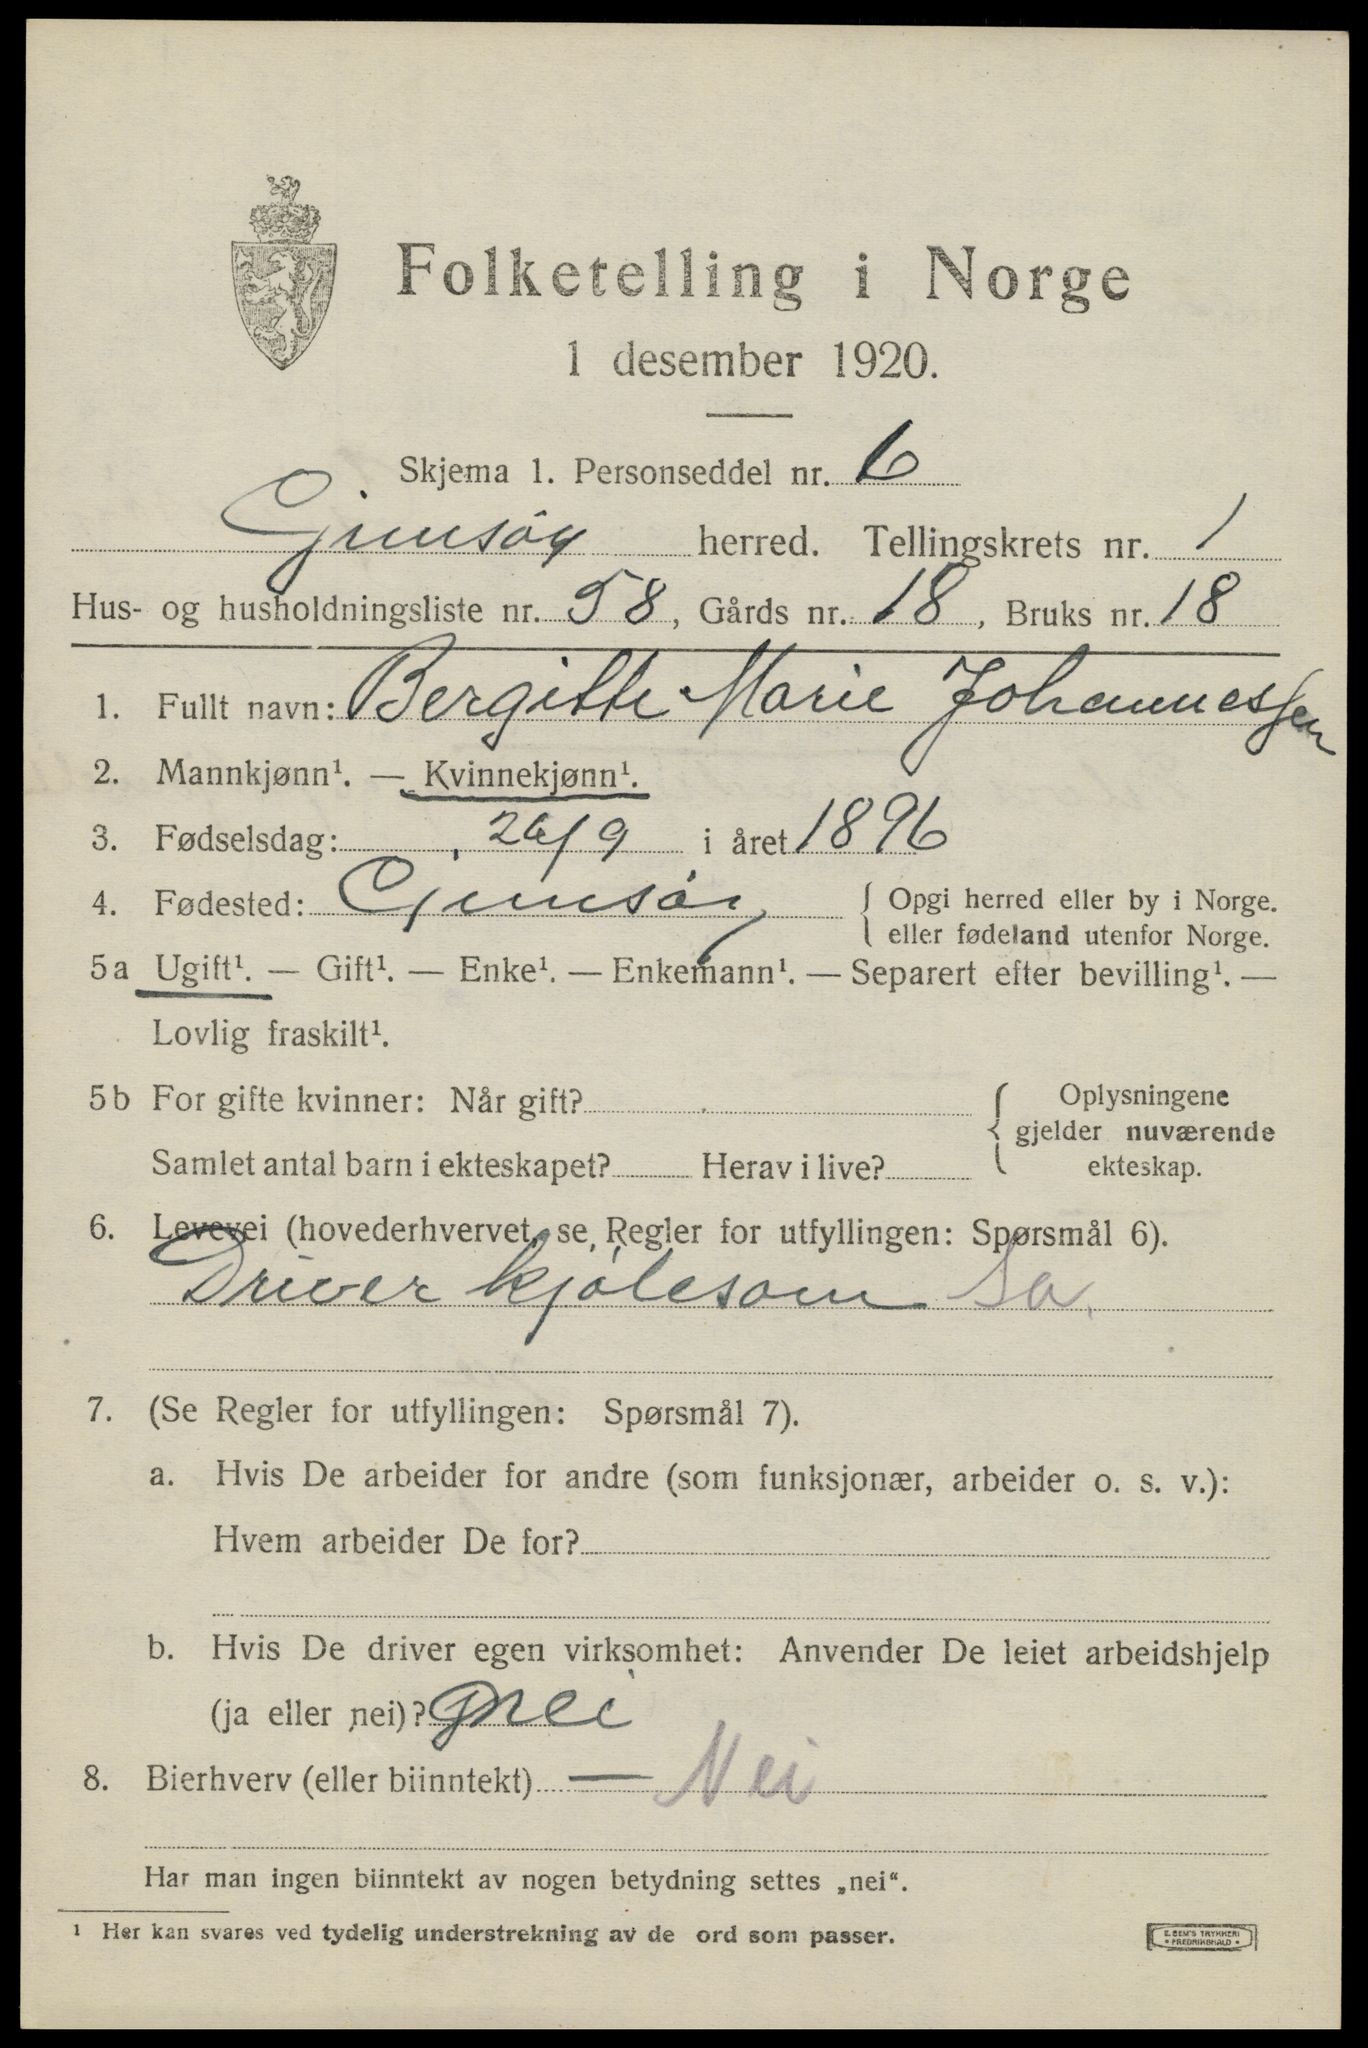 Folketelling i Norge
1 desember 1920.
Skjema 1. Personseddel nr. 6
Gimsøy herred. Tellingskrets nr. 1
Hus- og husholdningsliste nr. 58, Gårds nr. 18, Bruks nr. 18
1. Fullt navn: Bergitte Marie Johannessen
2. Mannkjønn¹. — Kvinnekjønn¹.
3. Fødselsdag: 26/9 i året 1896
4. Fødested: Gimsøy { Opgi herred eller by i Norge.
eller fødeland utenfor Norge.
5a Ugift¹. — Gift¹. — Enke¹. — Enkemann¹. — Separert efter bevilling¹. —
Lovlig fraskilt¹.
5b For gifte kvinner: Når gift? { Oplysningene
gjelder nuværende
Samlet antal barn i ekteskapet? Herav i live?
ekteskap.
6. Levevei (hovederhvervet, se Regler for utfyllingen: Spørsmål 6).
Driver kjolesøm
7. (Se Regler for utfyllingen: Spørsmål 7).
a. Hvis De arbeider for andre (som funksjonær, arbeider o. s. v.):
Hvem arbeider De for?
b. Hvis De driver egen virksomhet: Anvender De leiet arbeidshjelp
(ja eller nei)? nei
8. Bierhverv (eller biinntekt) — Nei
Har man ingen biinntekt av nogen betydning settes „nei“.
¹ Her kan svares ved tydelig understrekning av de ord som passer.
E. SEM'S TRYKKERI
• FREDRIKSHALD •